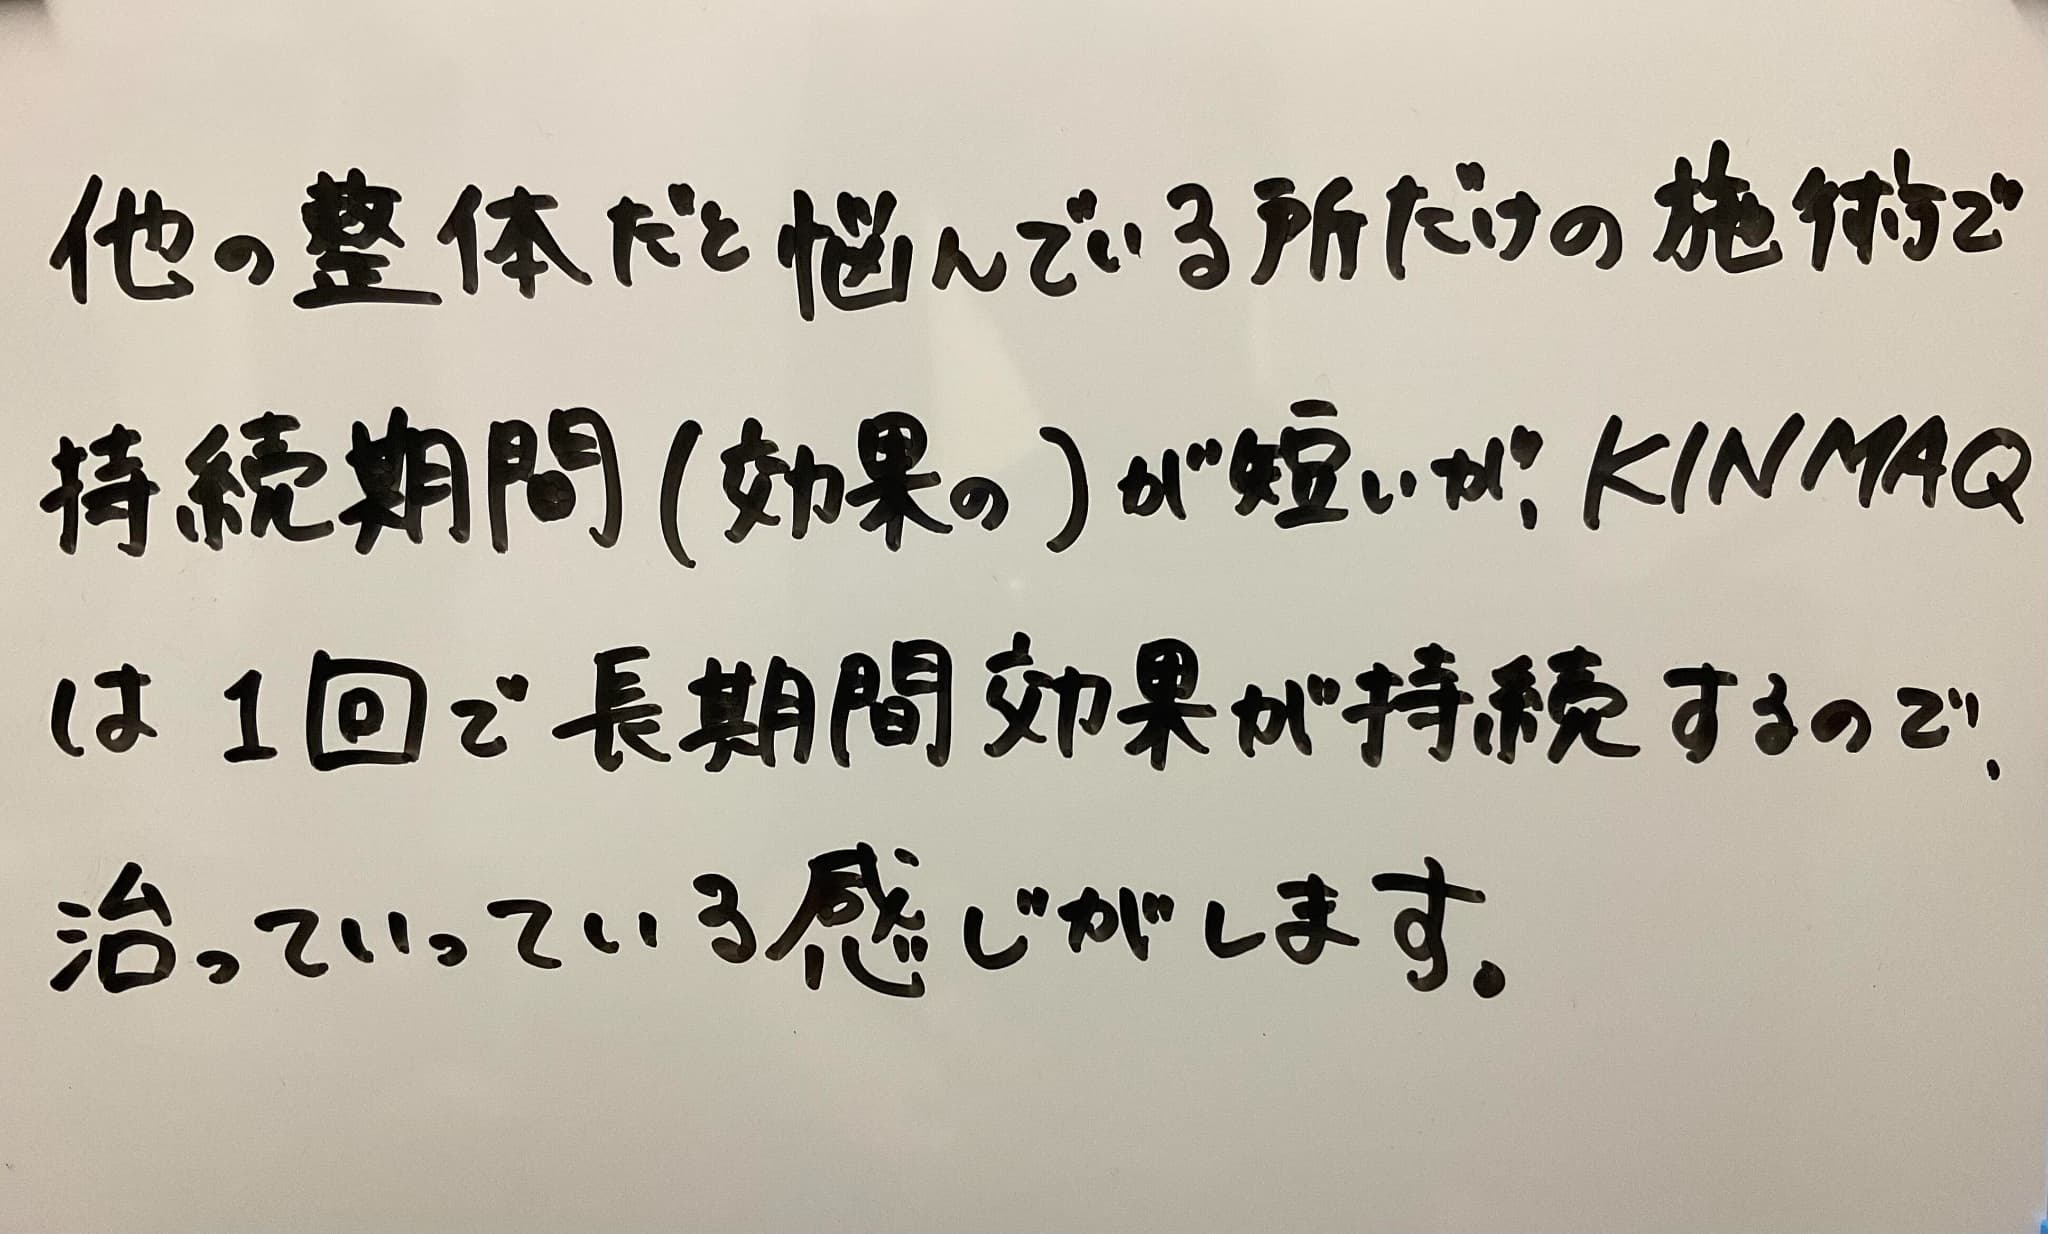 他の整体だと悩んでいる所だけの施術で
持続期間(効果の)が短いが、KINMAQ
は1回で長期間効果が持続するので、
治っていっている感じがします。